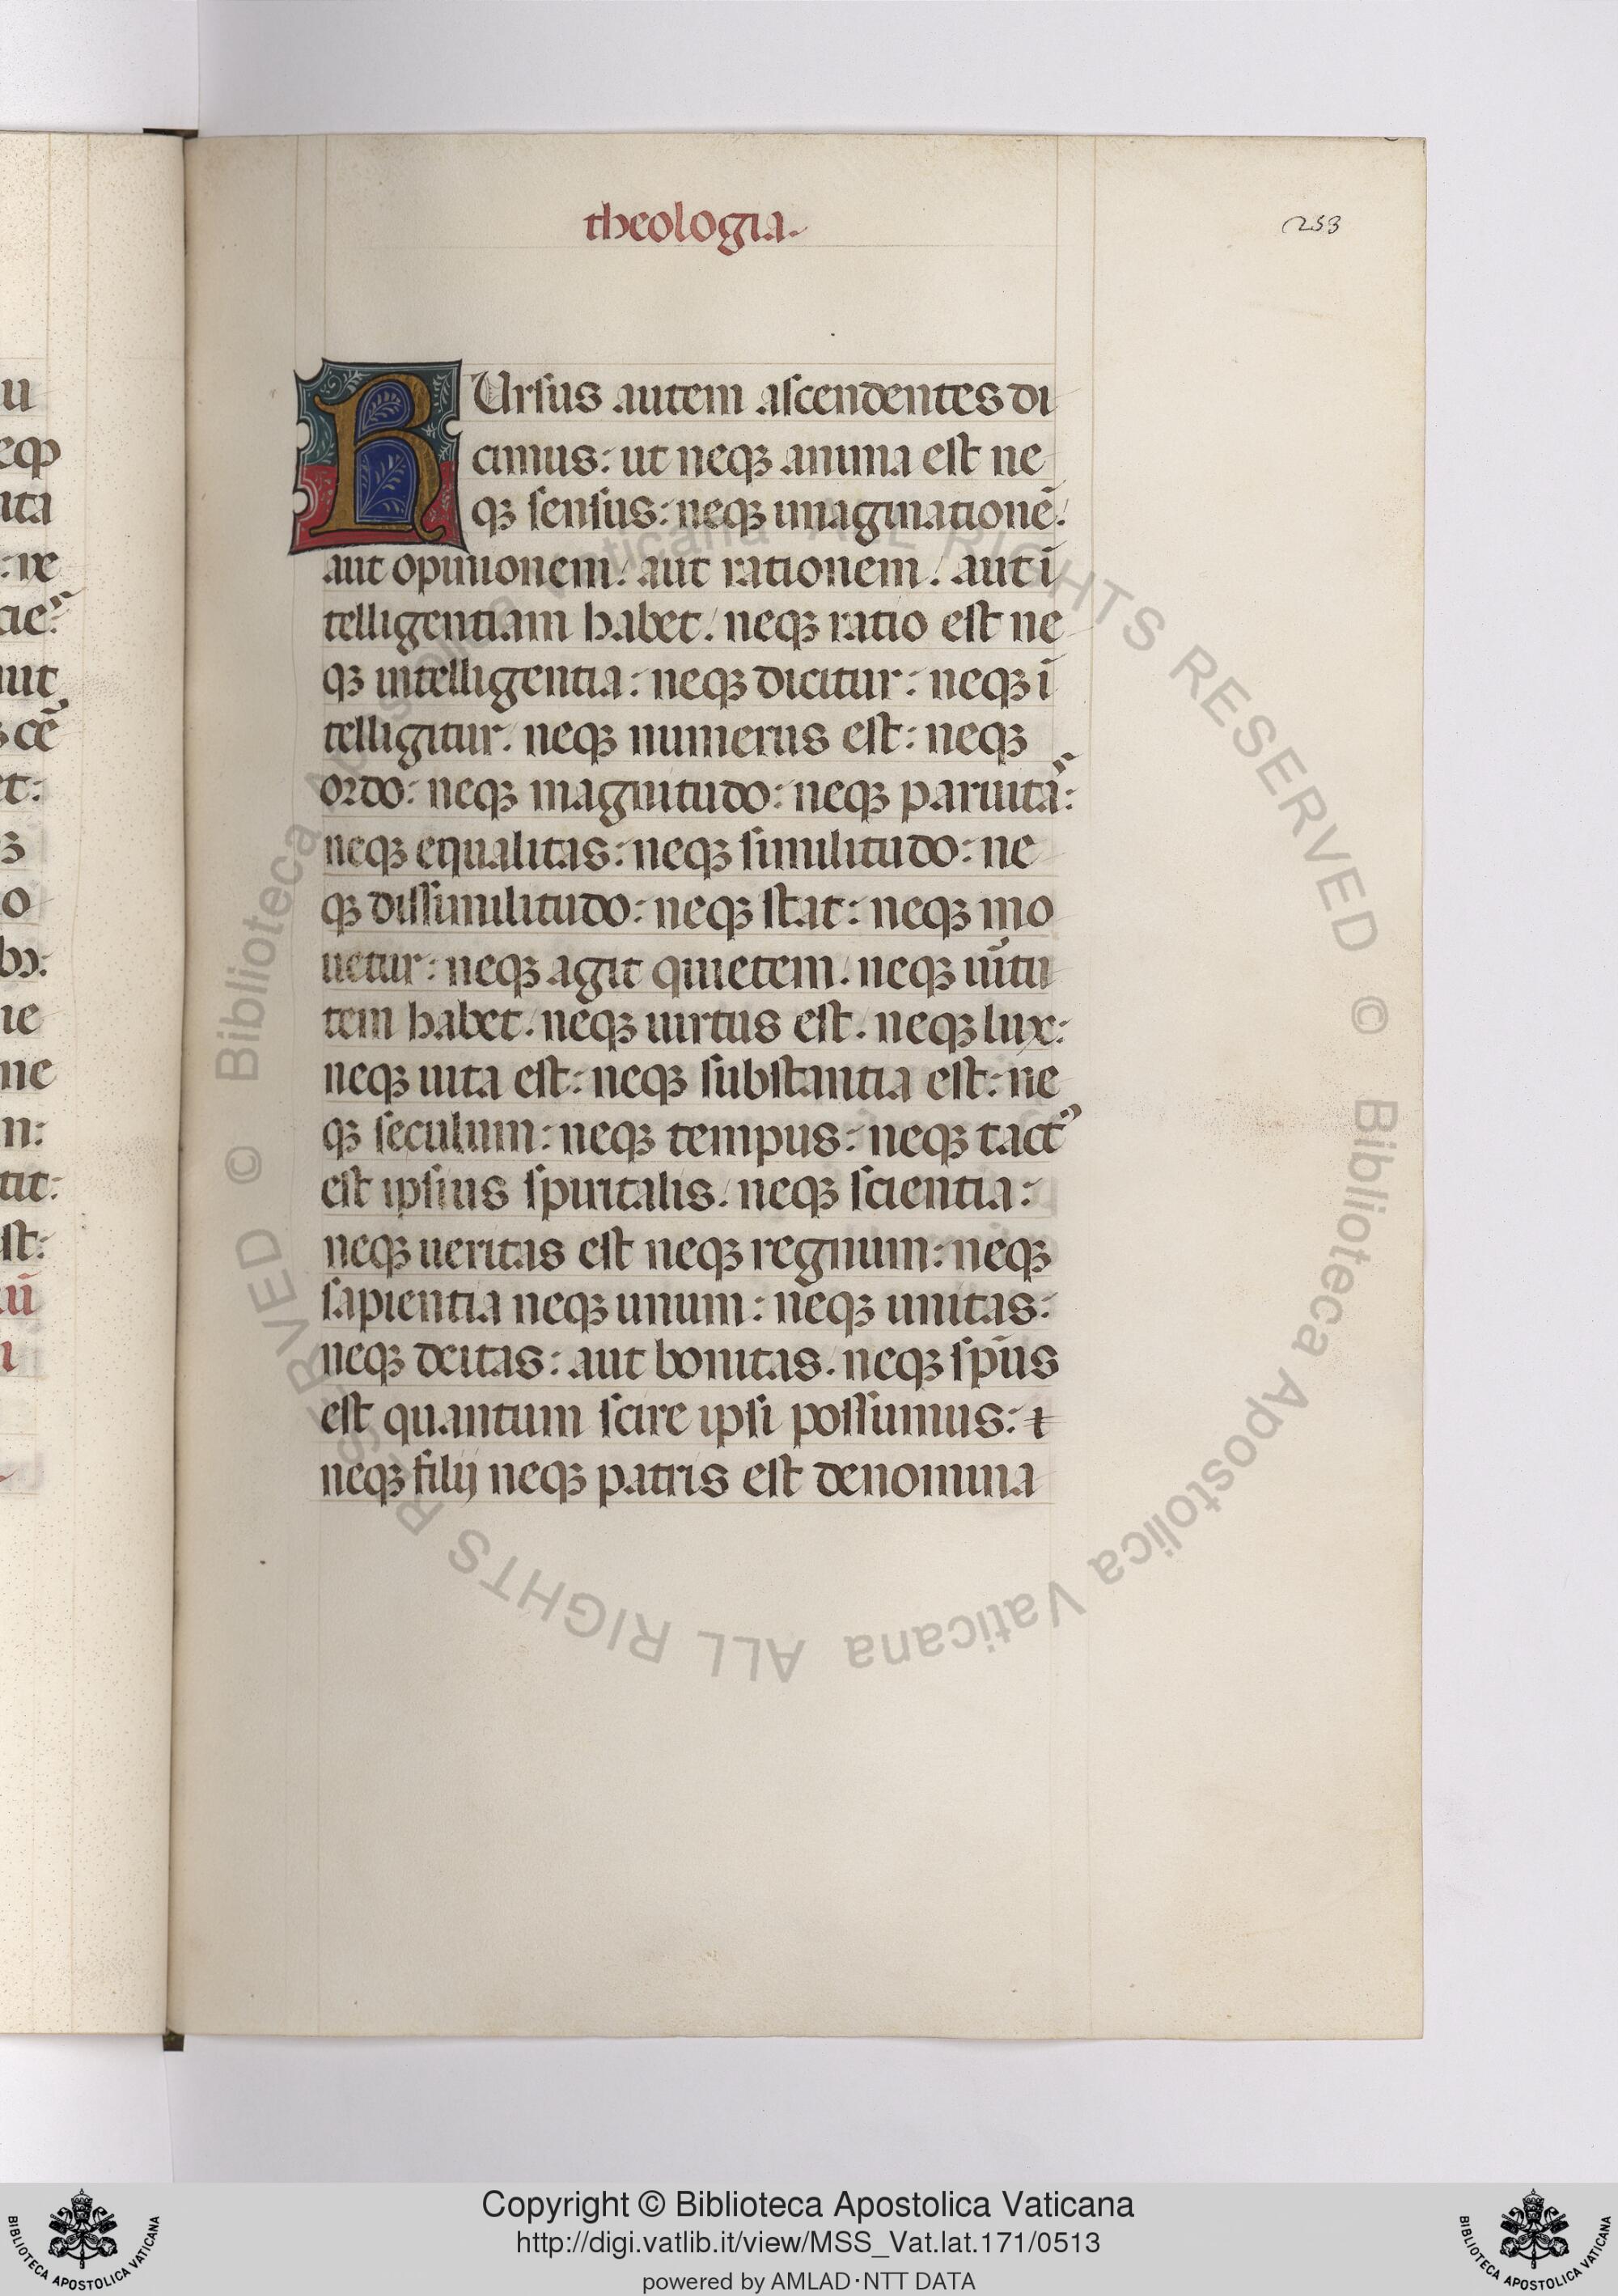 theologia.
253
RUrsus autem ascendentes di
cimus: ut neqꝫ anima est ne
qꝫ sensus: neqꝫ imaginationē:
aut opinionem: aut rationem: aut ī
telligentiam habet. neqꝫ ratio est ne
qꝫ intelligentia: neqꝫ dicitur: neqꝫ ī
telligitur. neqꝫ numerus est: neqꝫ
ordo: neqꝫ magnitudo: neqꝫ paruitaˢ:
neqꝫ equalitas: neqꝫ similitudo: ne
qꝫ dissimilitudo: neqꝫ stat: neqꝫ mo
uetur: neqꝫ agit quietem. neqꝫ uı̄tu
tem habet. neqꝫ uirtus est. neqꝫ lux:
neqꝫ uita est: neqꝫ substantia est: ne
qꝫ seculum: neqꝫ tempus: neqꝫ tactꝰ
est ipsius spiritalis. neqꝫ scientia:
neqꝫ ueritas est neqꝫ regnum: neqꝫ
sapientia neqꝫ unum: neqꝫ unitas:
neqꝫ deitas: aut bonitas. neqꝫ sp̄us
est quantum scire ipsi possumus: ⁊
neqꝫ filij neqꝫ patris est denomina
© Biblioteca Apostolica Vaticana ALL RIGHTS RESERVED © Biblioteca Apostolica Vaticana ALL RIGHTS RESERVED
Copyright © Biblioteca Apostolica Vaticana
http://digi.vatlib.it/view/MSS_Vat.lat.171/0513
powered by AMLAD·NTT DATA
BIBLIOTECA APOSTOLICA VATICANA
BIBLIOTECA APOSTOLICA VATICANA